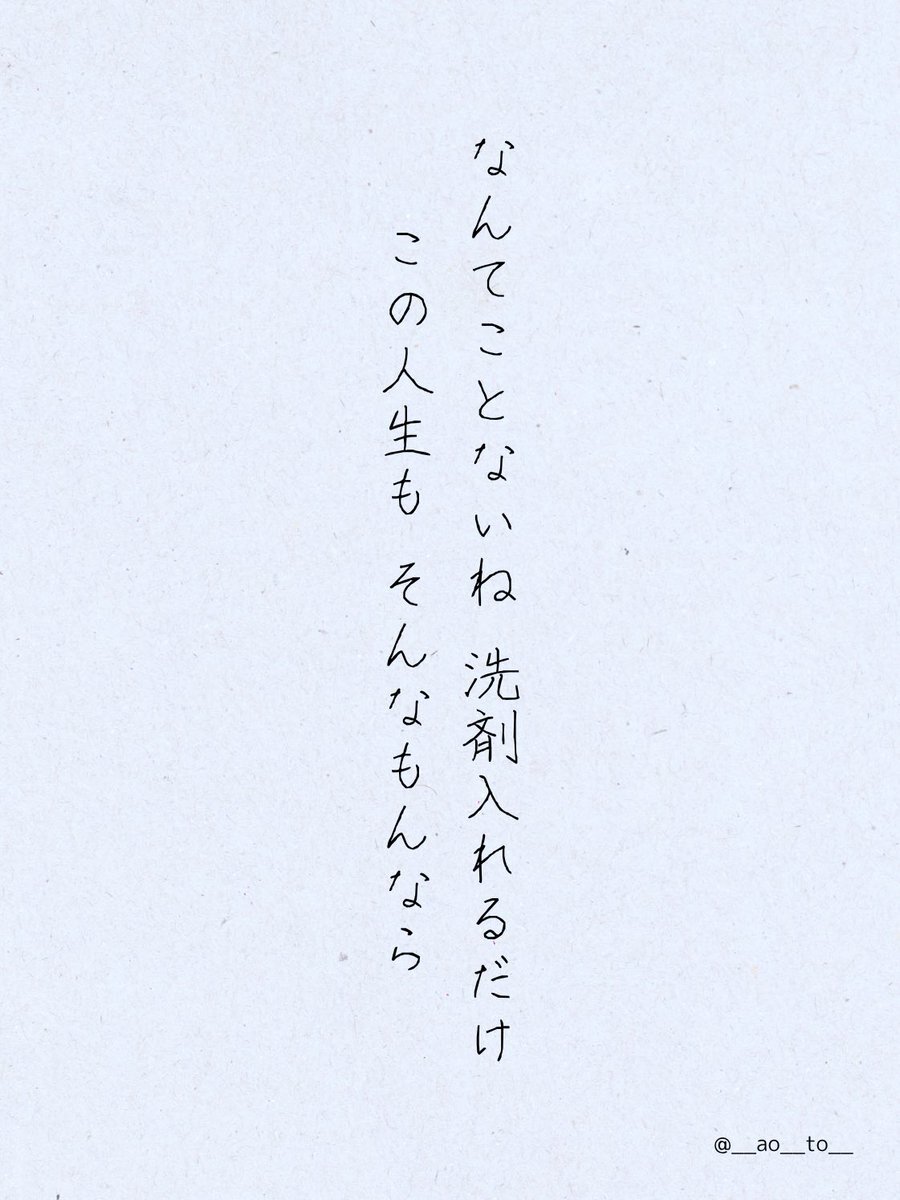 なんてことないね 洗剤入れるだけ
この人生も そんなもんなら
@__ao__to__